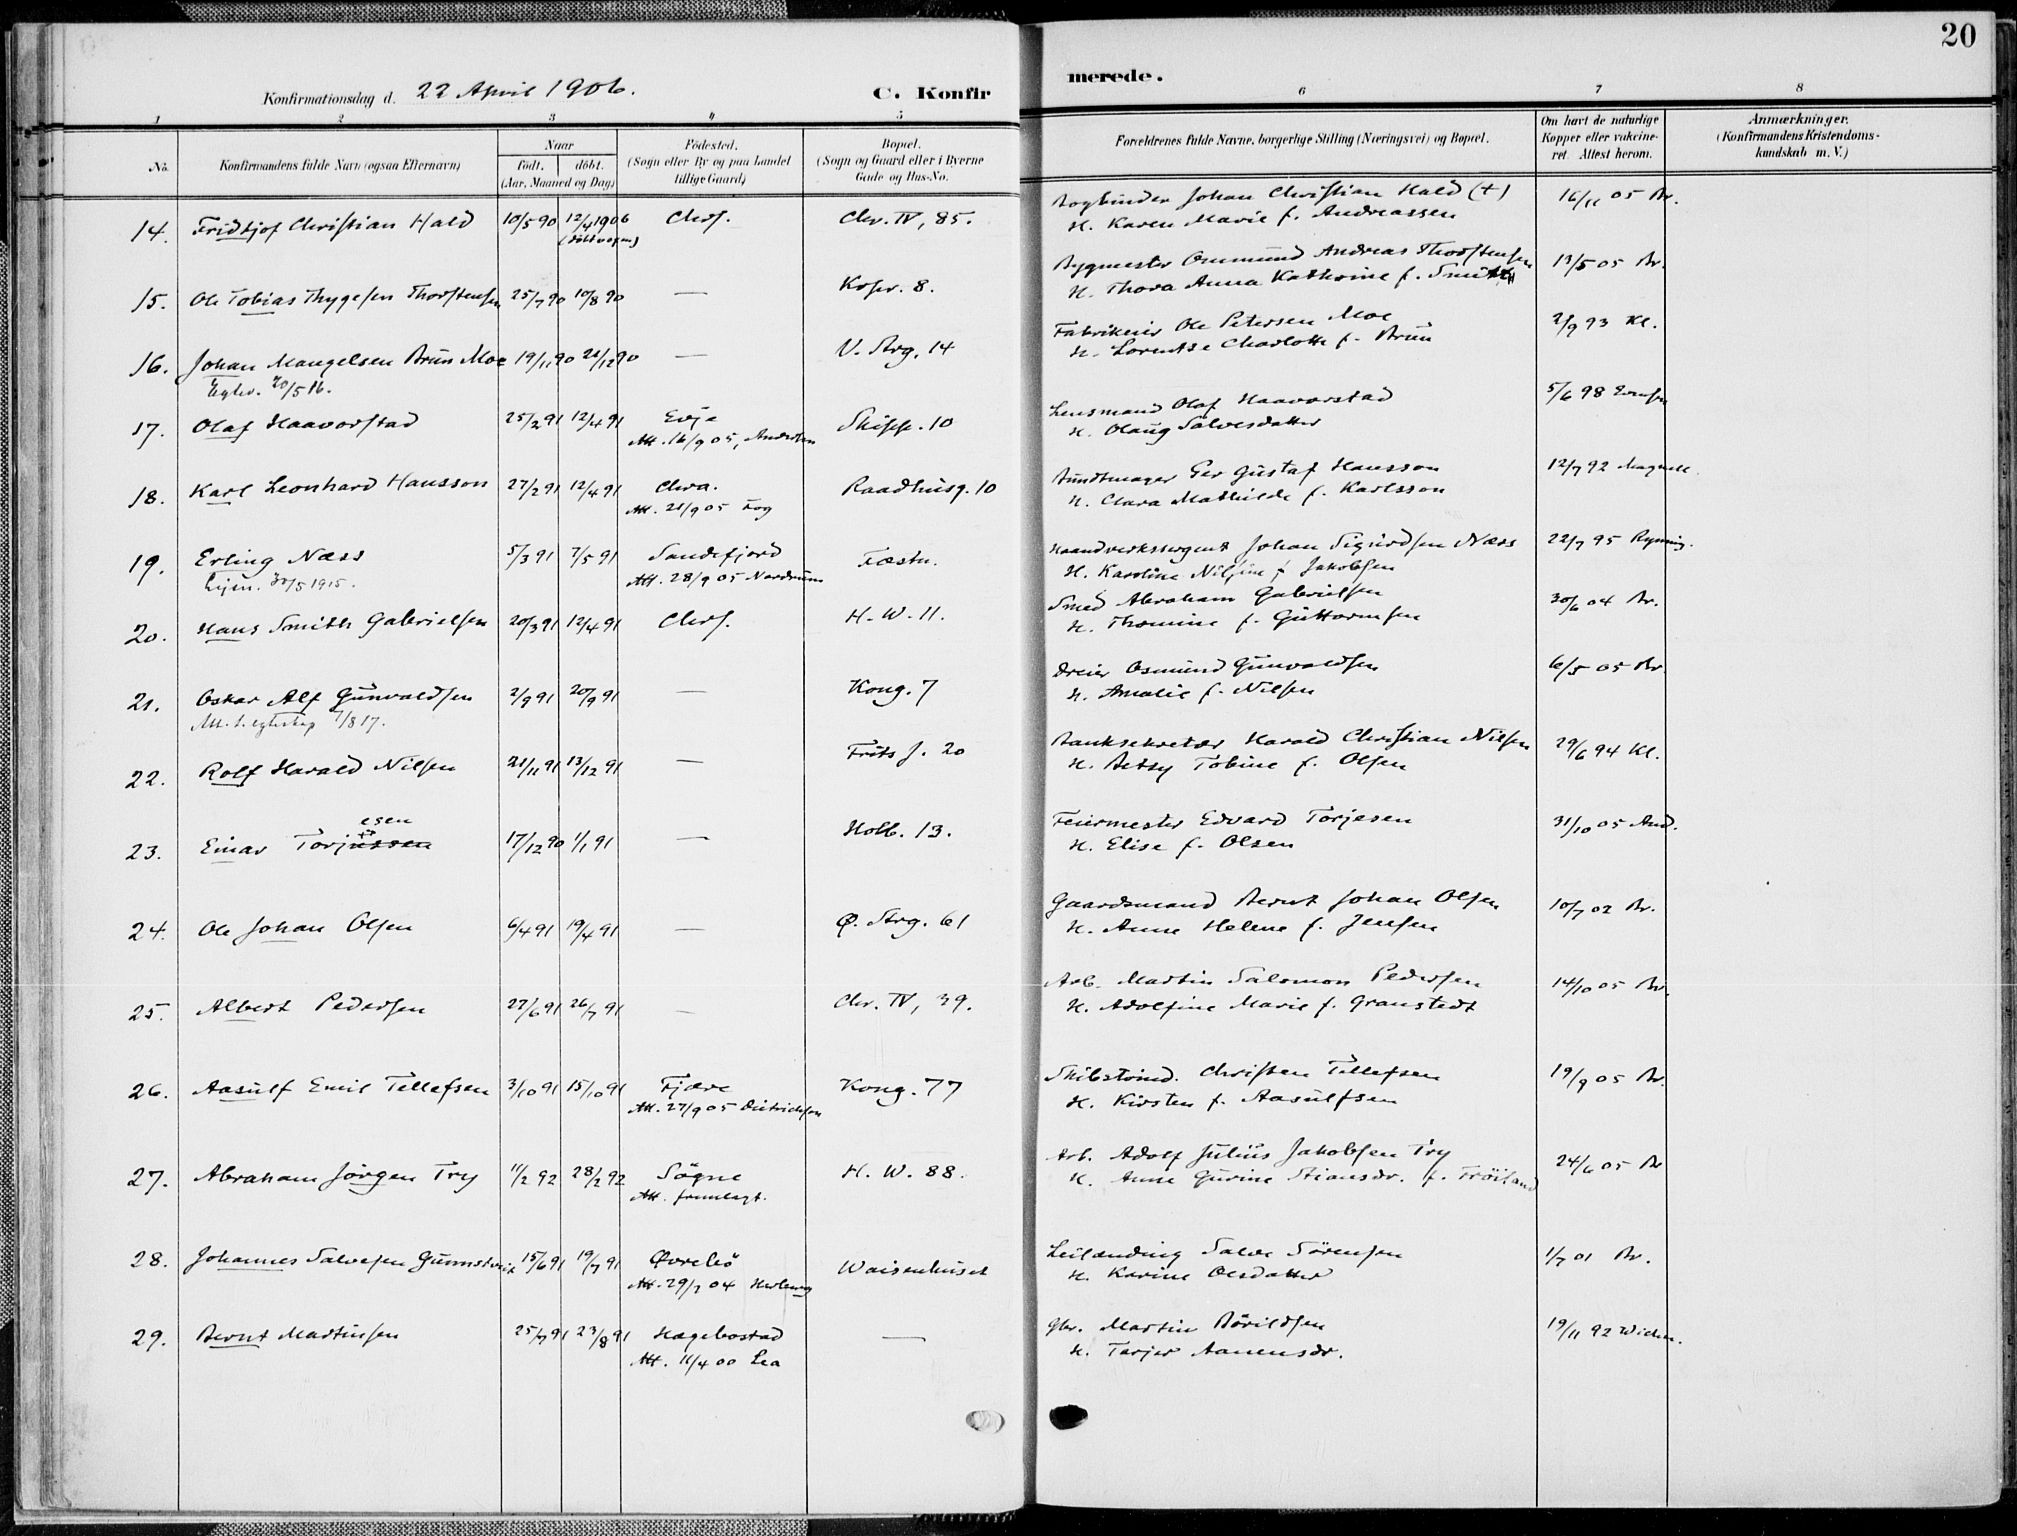 20
Konfirmationsdag d. 22 April 1906.
C. Konfirmerede.
1 2 3 4 5 6 7 8
No.
Konfirmandens fulde Navn (ogsaa Efternavn)
Naar
födt. döbt.
(Aar, Maaned og Dag)
Födested.
(Sogn eller By og paa Landet
tillige Gaard)
Bopæl.
(Sogn og Gaard eller i Byerne
Gade og Hus-No.
Forældrenes fulde Navne, borgerlige Stilling (Næringsvei) og Bopæl.
Om havt de naturlige
Kopper eller vakcine-
ret. Attest herom.
Anmærkninger.
(Konfirmandens Kristendoms-
kundskab m. V.)
14. Fridtjof Christian Hald 10/5 90 12/4 1906 Chrs. Chr. IV, 85. Bogbinder Johan Christian Hald (+) 16/11 05 Br.
H. Karen Marie f. Andreassen
15. Ole Tobias Thygesen Thorstensen 25/7 90 10/8 90 — Kosv. 8. Bygmester Ommund Andreas Thorstensen 13/5 05 Br.
H. Thora Anna Kathrine f. Smith
16. Johan Mangelsen Brun Moe 19/11 90 21/12 90 — V. Strg. 14 Fabrikeier Ole Petersen Moe 2/9 93 Kl.
Egtev. 20/5 16.
H. Lorentse Charlotte f. Brun
17. Olaf Haavorstad 25/2 91 12/4 91 Evje Skipp. 10 Lensmand Olaf Haavorstad 5/6 98
Att. 16/9 05,
H. Olaug Salvesdatter
18. Karl Leonhard Hansson 27/2 91 12/4 91 Chra. Raadhusg. 10 Bundtmager Per Gustaf Hansson 12/7 92
Att. 21/9 05 Fog
H. Clara Mathilde f. Karlsson
19. Erling Næss 5/3 91 7/5 91 Sandefjord Fæstn. Haandverkssergent Johan Sigurdsen Næss 22/7 95 Rynning.
30/5 1915.
Att. 28/9 05 Nordrum
H. Karoline Nilsine f. Jakobsen
20. Hans Smith Gabrielsen 20/3 91 12/4 91 Chrs. H. W. 11. Smed Abraham Gabrielsen 30/6 04 Br.
H. Thomine f. Guttormsen
21. Oskar Alf Gunvaldsen 2/9 91 20/9 91 — Kong. 7 Dreier Osmund Gunvaldsen 6/5 05 Br.
Att. t. egteskap 7/8 17.
H. Amalie f. Nilsen
22. Rolf Harald Nilsen 21/11 91 13/12 91 — Frits J. 20 Banksekretær Harald Christian Nilsen 29/6 94 Kl.
H. Betsy Tobine f. Olsen
esen
23. Einar Torjussen 17/12 90 1/1 91 — Holb. 13. Feiermester Edvard Torjesen 31/10 05 And.
H. Elise f. Olsen
24. Ole Johan Olsen 6/4 91 19/4 91 — Ø. Strg. 61 Gaardsmand Bernt Johan Olsen 10/7 02 Br.
H. Anne Helene f. Jensen
25. Albert Pedersen 27/6 91 26/7 91 — Chr. IV, 39. Arb. Martin Salomon Pedersen 14/10 05 Br.
H. Adolfine Marie f. Granstedt
26. Aasulf Emil Tellefsen 3/10 91 15/10 91 Fjære Kong. 77 Skibstömd. Christen Tellefsen 19/9 05 Br.
Att. 27/9 05 Dietrichson
H. Kirsten f. Aasulfsen
27. Abraham Jörgen Try 11/2 92 28/2 92 Sögne H. W. 88. Arb. Adolf Julius Jakobsen Try 24/6 05 Br
Att. fremlagt.
H. Anne Gurine Stiansdr. f. Tröiland
28. Johannes Salvesen Gumstveit 15/6 91 19/7 91 Øvrebö Waisenhuset Leilænding Salve Sörensen 1/7 01 Br.
Att. 29/7 04
H. Karine Olsdatter
29. Bernt Martinsen 25/7 91 23/8 91 Hægebostad — Gbr. Martin Börildsen 19/11 92
Att. 11/4 00 Lea
H. Tarjer Aanensdr.